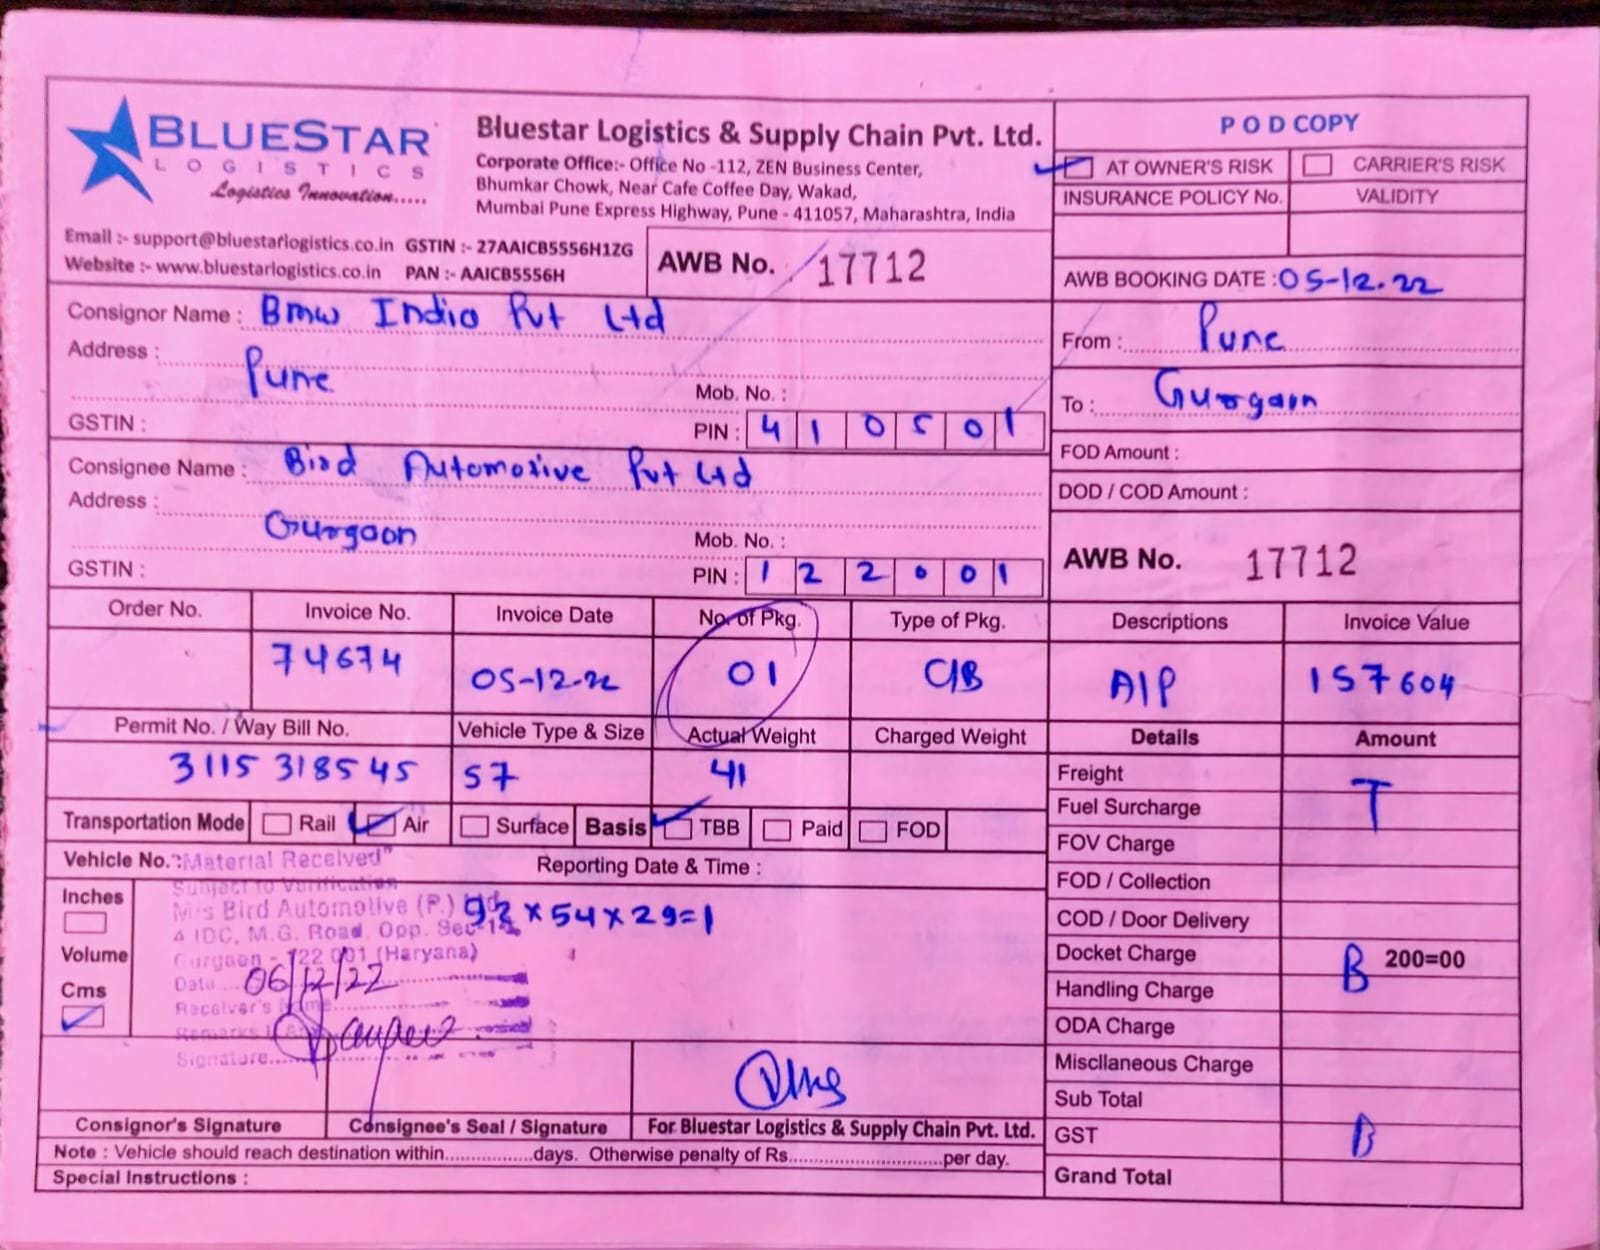 BLUESTAR
LOGISTICS
Logistics Innovation.....
Bluestar Logistics & Supply Chain Pvt. Ltd.
Corporate Office:- Office No -112, ZEN Business Center,
Bhumkar Chowk, Near Cafe Coffee Day, Wakad,
Mumbai Pune Express Highway, Pune - 411057, Maharashtra, India
Email :- support@bluestarlogistics.co.in GSTIN :- 27AAICB5556H1ZG
Website :- www.bluestarlogistics.co.in PAN :- AAICB5556H
AWB No. 17712
POD COPY
AT OWNER'S RISK CARRIER'S RISK
INSURANCE POLICY No. VALIDITY
AWB BOOKING DATE : 05-12.22
Consignor Name : Bmw India Pvt Ltd
Address :
Pune
Mob. No. :
GSTIN :
PIN : 410501
From : Pune
To : Gurgaon
Consignee Name : Bird Automotive Pvt Ltd
Address :
Gurgaon
Mob. No. :
GSTIN :
PIN : 122001
FOD Amount :
DOD / COD Amount :
AWB No. 17712
Order No. Invoice No. Invoice Date No. of Pkg. Type of Pkg. Descriptions Invoice Value
74674 05-12-22 01 C/B A/P 157604
Permit No. / Way Bill No. Vehicle Type & Size Actual Weight Charged Weight Details Amount
3115 318545 57 41
Transportation Mode Rail Air Surface Basis TBB Paid FOD
Vehicle No. : Reporting Date & Time :
"Material Received"
Subject to Verification
M/s Bird Automotive (P.)
4 IDC, M.G. Road, Opp. Sec-14,
Gurgaon - 122 001 (Haryana)
Date.... 06/12/22
Receiver's Name
Remarks
Signature
Inches
Volume
Cms
92 x 54 x 29 = 1
Freight T
Fuel Surcharge
FOV Charge
FOD / Collection
COD / Door Delivery
Docket Charge B 200=00
Handling Charge
ODA Charge
Miscllaneous Charge
Sub Total
GST B
Grand Total
Consignor's Signature Consignee's Seal / Signature For Bluestar Logistics & Supply Chain Pvt. Ltd.
Note : Vehicle should reach destination within.................days. Otherwise penalty of Rs..............................per day.
Special Instructions :